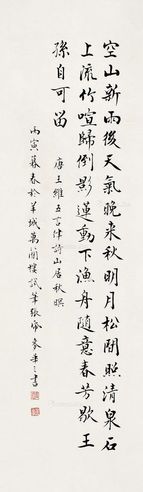 空山新雨後天氣晚来秋明月松間照清泉石
上流竹喧歸倒影蓮動下漁舟隨意春芳歇王
孫自可留
唐王維五言律詩山居秋暝
丙寅暮春於羊城萬蘭樓試筆張 麥華三書